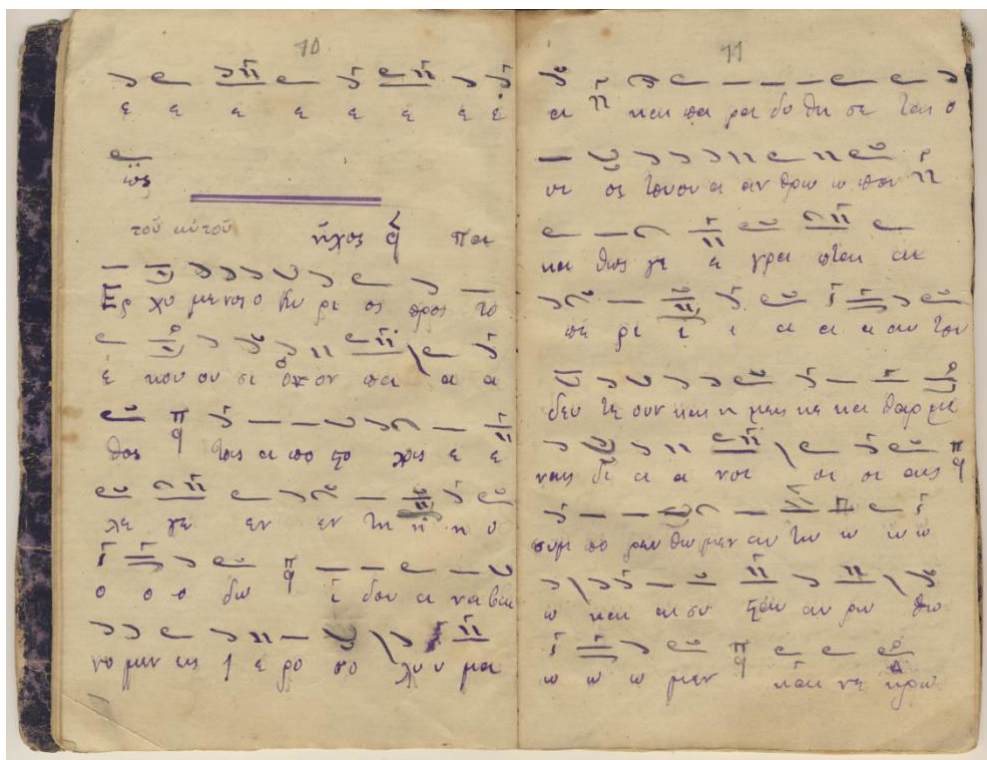 10
ε ε ε ε ε ε ε ε
ως
τοῦ αὐτοῦ ἦχος πα
Ερ χο με νος ο Κυ ρι ος προς το
ε κου ου σι ον πα α α
θος τοις α πο στο λοις ε ε
λε γε εν εν τη η η ο
ο ο ο δω ι δου α να βαι
νο μεν εις Ι ε ρο σο λυ υ μα
11
α και πα ρα δο θη σε ται ο
υι ος του ου α αν θρω ω που
κα θως γε ε γρα πται αι
πε ρι ι ι α α α αυ του
δευ τε ουν και η μεις κε κα θαρ με
ναις δι α α νοι οι οι αις
συμ πο ρευ θω μεν αυ τω ω ω ω
ω και συ σταυ αυ ρω θω
ω ω ω μεν και νε κρω